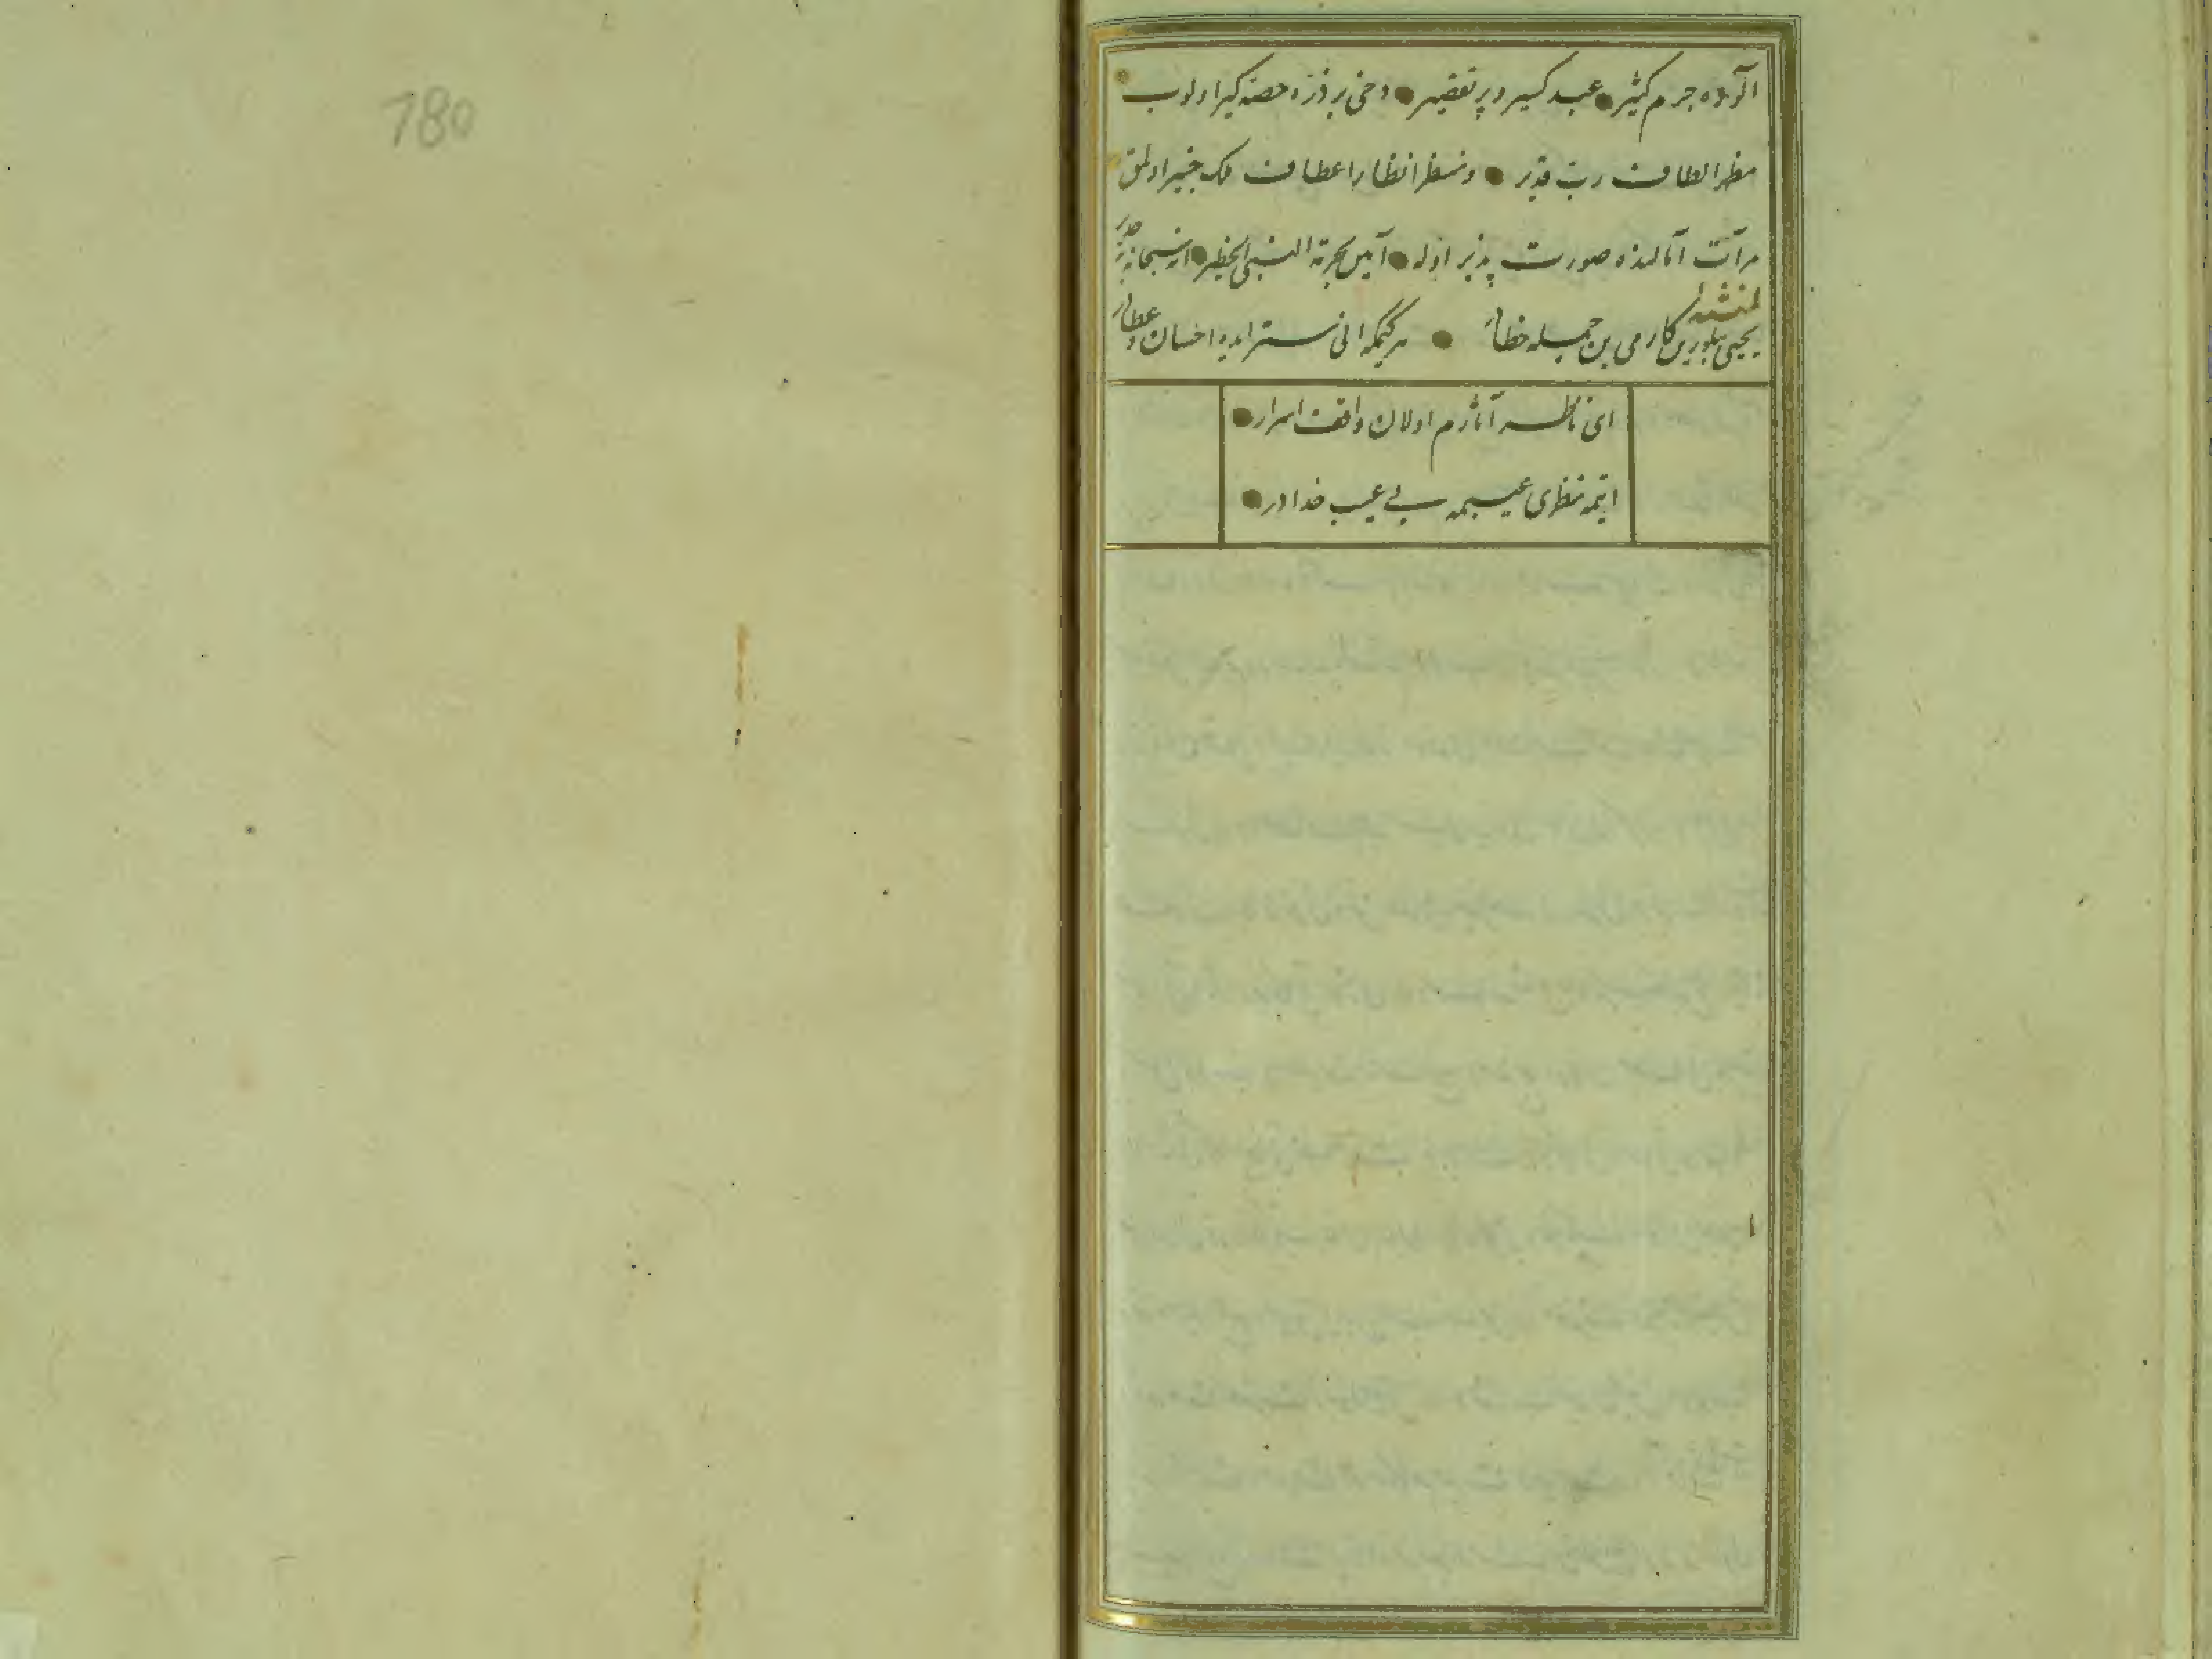 780
آلوده جرم کثیر عبد کسیر و پر تقصیر دخی بر ذره حصه کیر اولوب
مظهر الطاف رب قدیر و منظر انظار اعطاف ملک خبیر اولمق
مرآت آمالنده صورت پذیر اوله آمین بحرمة النبی الخطیر انه سبحانه
لمنشئه
یحیی بیلورین کارمی بن جمله خطادر هر کیمکه انی ستر ایده احسان و عطادر
ای ناظر آثارم اولان واقف اسرار
ایتمه نظری عیبمه بی عیب خدادر